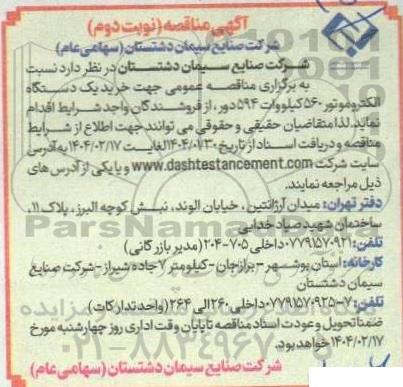 آگهی مناقصه (نوبت دوم)
شرکت صنایع سیمان دشتستان (سهامی عام)
شرکت صنایع سیمان دشتستان در نظر دارد نسبت
به برگزاری مناقصه عمومی جهت خرید یک دستگاه
الکتروموتور ۵۶۰ کیلووات ۵۹۴ دور، از فروشندگان واجد شرایط اقدام
نماید. لذا متقاضیان حقیقی و حقوقی می توانند جهت اطلاع از شرایط
مناقصه و دریافت اسناد از تاریخ ۱۴۰۴/۰۱/۳۰ لغایت ۱۴۰۴/۰۲/۱۷ به آدرس
سایت شرکت www.dashtestancement.com و یا یکی از آدرس های
ذیل مراجعه نمایند.
دفتر تهران: میدان آرژانتین، خیابان الوند، نبش کوچه البرز، پلاک ۱۱،
ساختمان شهید صیاد خدایی
تلفن: ۰۷۷۹۱۵۷۰۹۲۱ داخلی ۷۰۵-۲۰۴ (مدیر بازرگانی)
کارخانه: استان بوشهر - برازجان - کیلومتر ۷ جاده شیراز - شرکت صنایع
سیمان دشتستان
تلفن: ۷-۰۷۷۹۱۵۷۰۹۲۵ داخلی ۲۶۰ الی ۲۶۴ (واحد تدارکات)
ضمنا تحویل و عودت اسناد مناقصه تا پایان وقت اداری روز چهارشنبه مورخ
۱۴۰۴/۰۲/۱۷ خواهد بود.
شرکت صنایع سیمان دشتستان (سهامی عام)
ParsNamadData
۰۲۱-۸۸۳۴۹۶۷۰